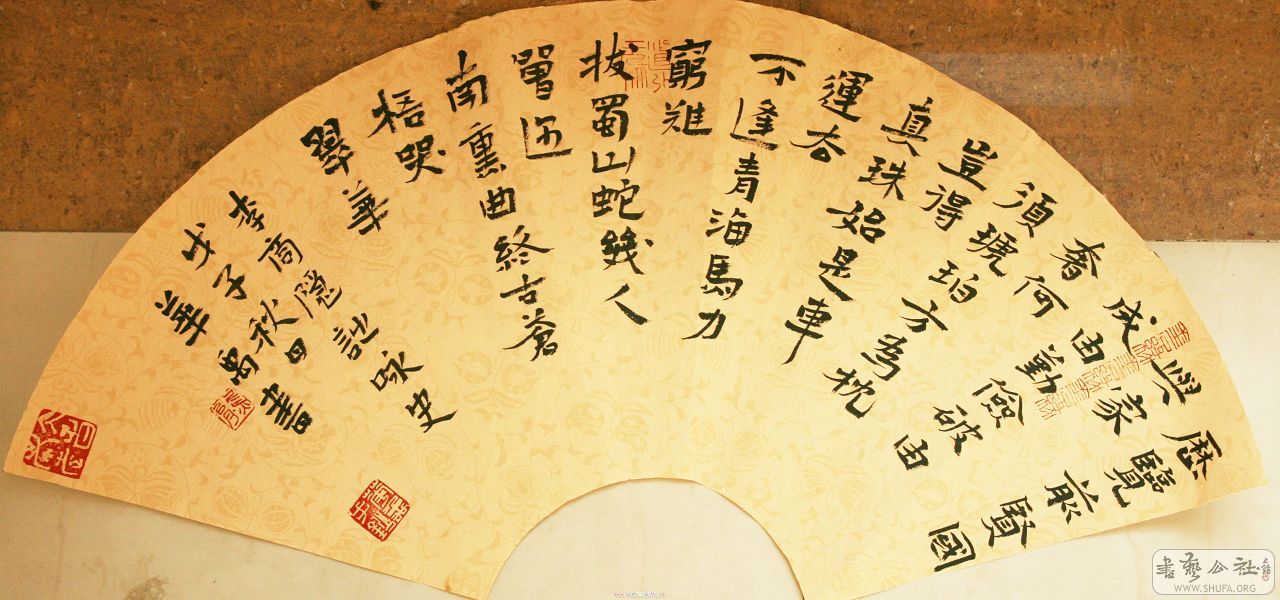 歷覽前賢國
與家
成由勤儉破由
奢何
須琥珀方為枕
豈得
真珠始是車
運去
不逢青海馬力
窮難
拔蜀山蛇幾人
曾
南熏曲終古蒼
梧哭
翠華
李商隱詩咏史
戊子秋日書
華禺
書藝公社
WWW.SHUFA.ORG